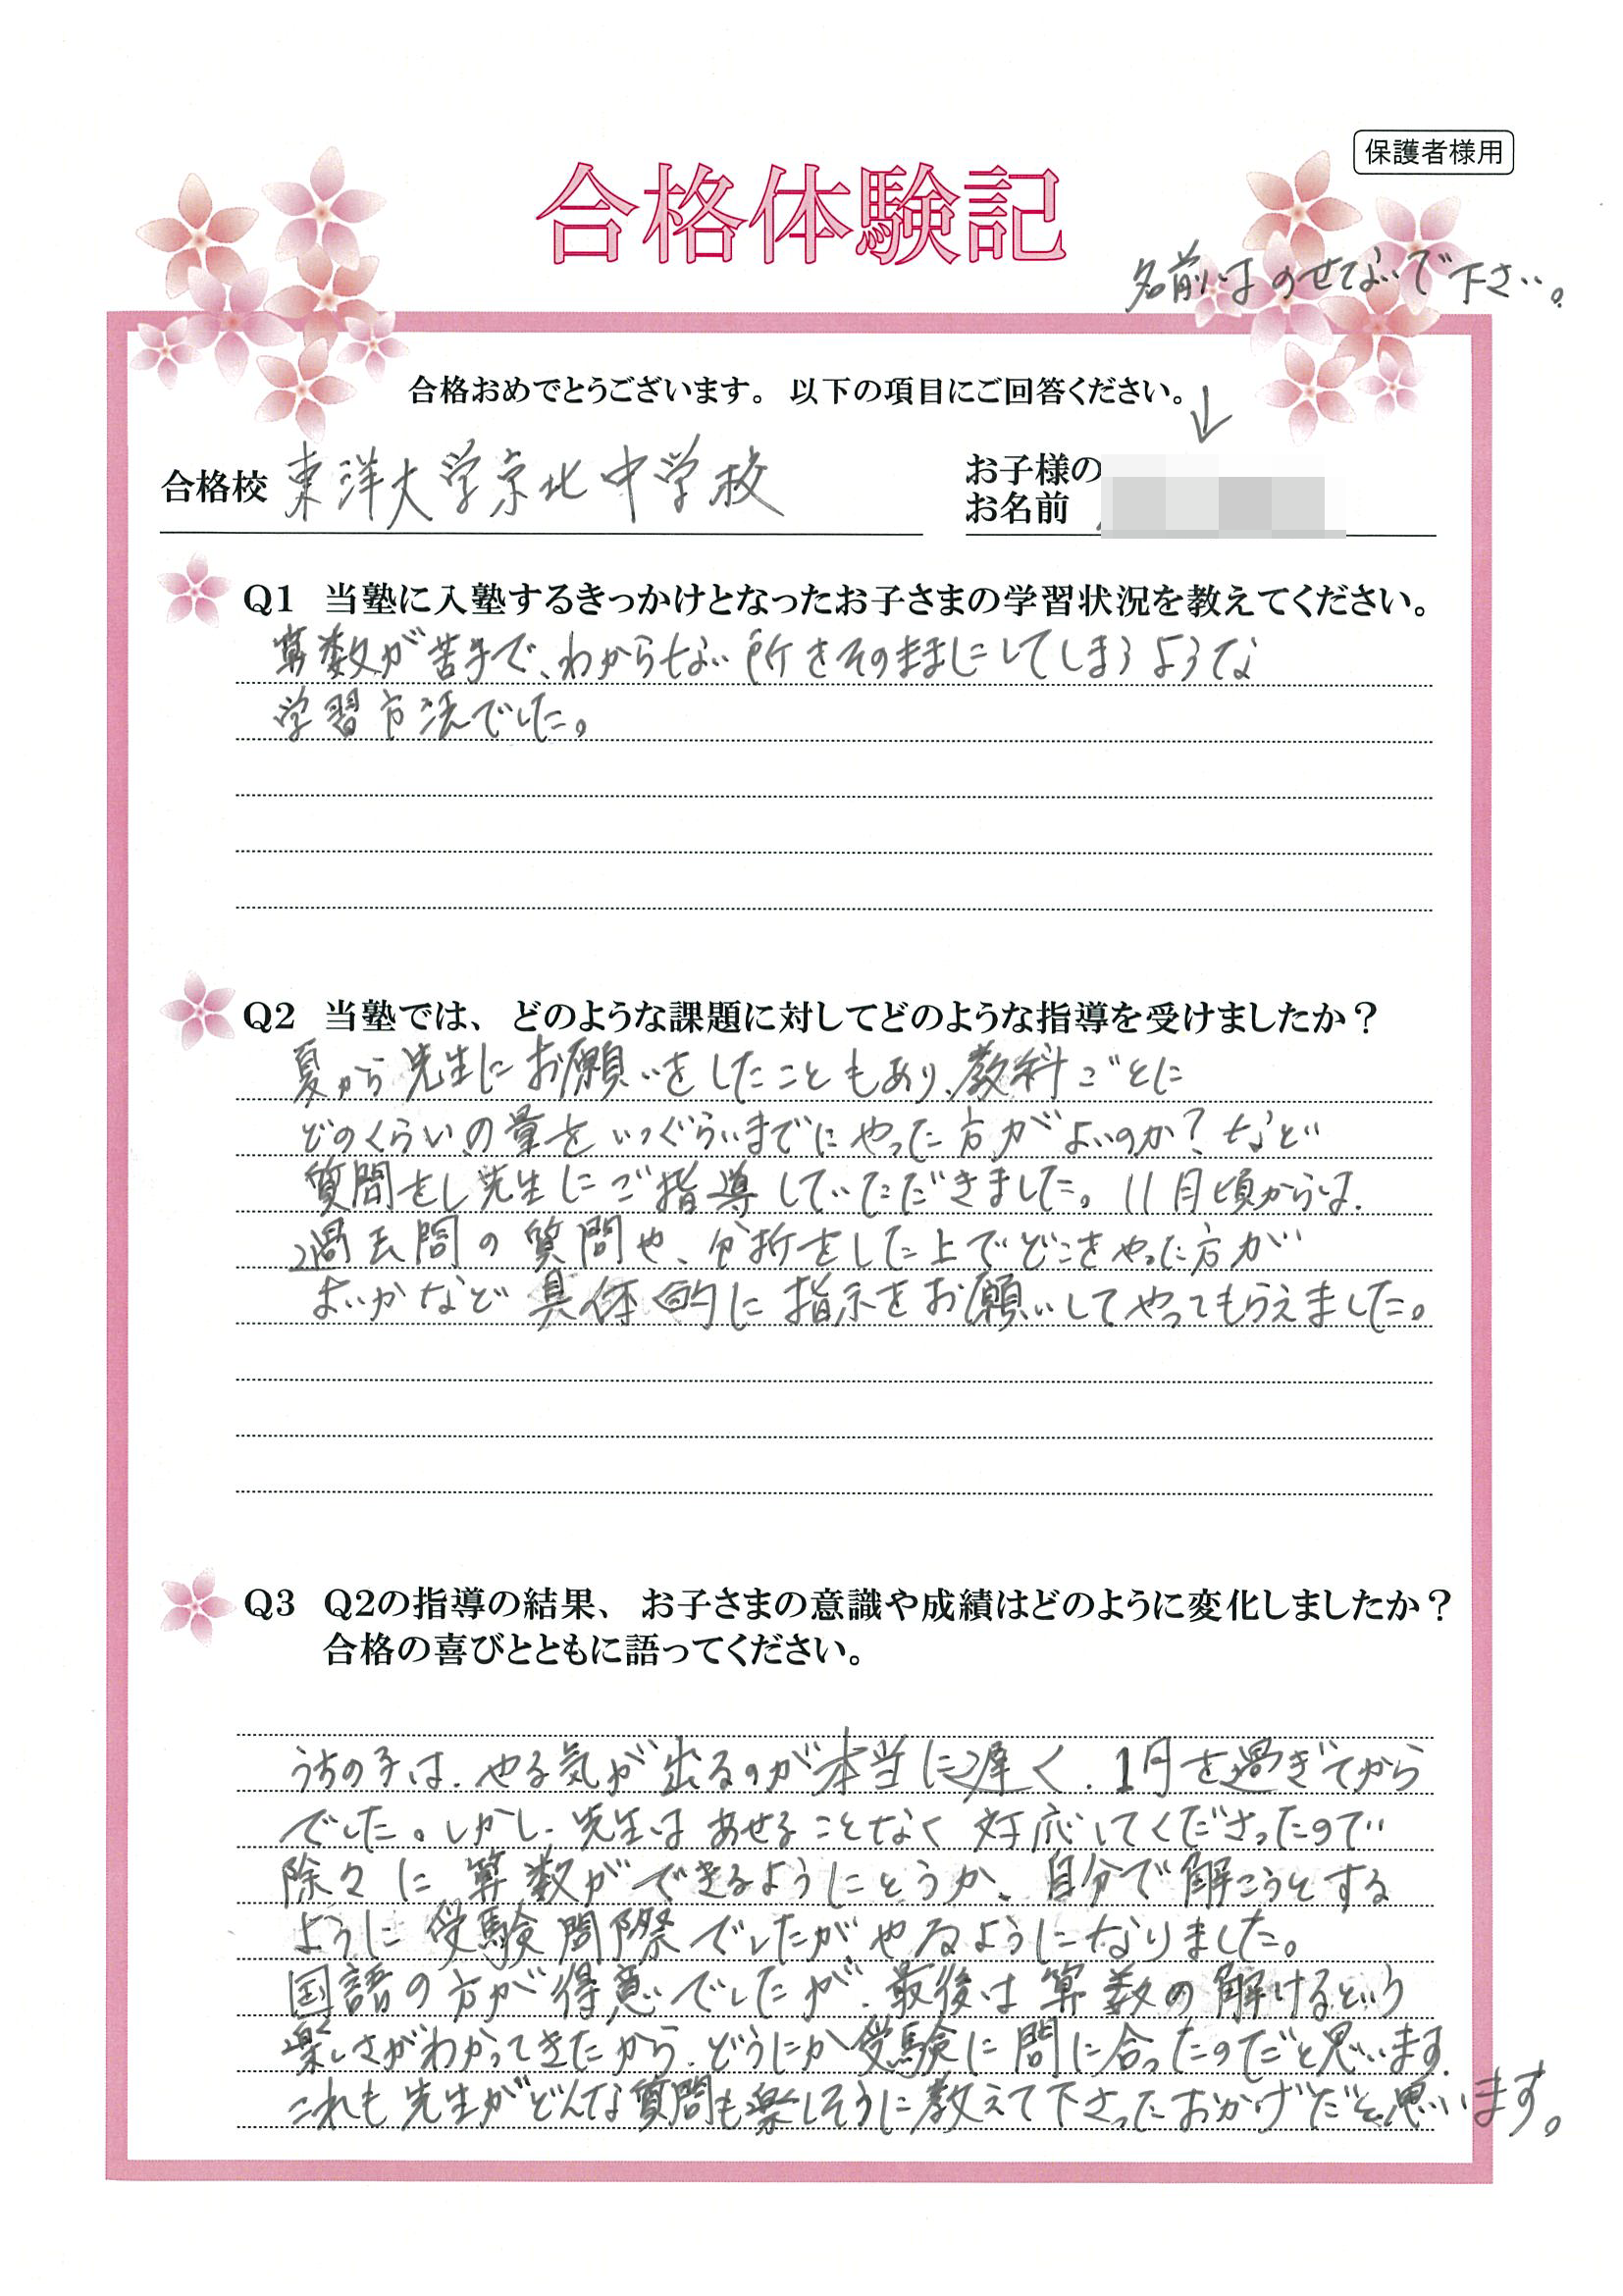 保護者様用
合格体験記
名前はのせないで下さい。
合格おめでとうございます。以下の項目にご回答ください。↓
合格校 東洋大学京北中学校
お子様の
お名前
Q1 当塾に入塾するきっかけとなったお子さまの学習状況を教えてください。
算数が苦手で、わからない所をそのままにしてしまうような
学習方法でした。
Q2 当塾では、どのような課題に対してどのような指導を受けましたか？
夏から先生にお願いをしたこともあり、教科ごとに
どのくらいの量をいつぐらいまでにやった方がよいのか？など
質問をし先生にご指導していただきました。11月頃からは、
過去問の質問や、分析をした上でどこをやった方が
よいかなど具体的に指示をお願いしてやってもらえました。
Q3 Q2の指導の結果、お子さまの意識や成績はどのように変化しましたか？
合格の喜びとともに語ってください。
うちの子は、やる気が出るのが本当に遅く、1月を過ぎてから
でした。しかし、先生はあせることなく対応してくださったので
除々に算数ができるようにとうか、自分で解こうとする
ように受験間際でしたがやるようになりました。
国語の方が得意でしたが、最後は算数の解けるという
楽しさがわかってきたから、どうにか受験に間に合ったのだと思います。
これも先生がどんな質問も楽しそうに教えて下さったおかげだと思います。